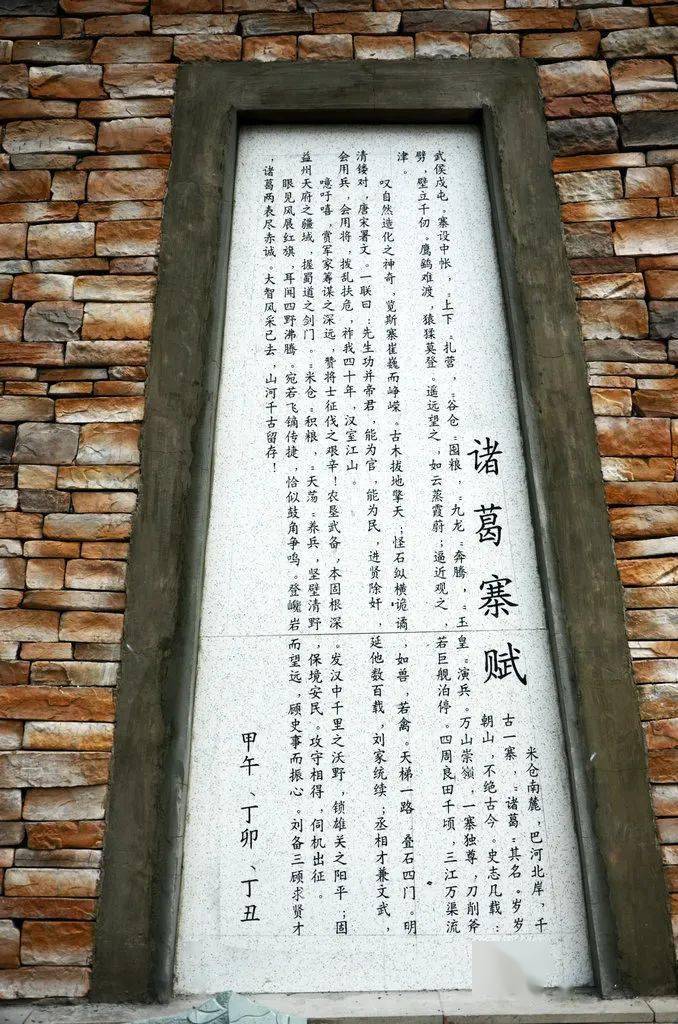 诸葛寨赋
米仓南麓，巴河北岸，千
古一寨，“诸葛”其名。岁岁
朝山，不绝古今。史志几载：
武侯戍屯。寨设中帐，“上下”扎营，“谷仓”囤粮，“九龙”奔腾，“玉皇”演兵。万山崇嶺，一寨独尊，刀削斧
劈，壁立千仞。鹰鹞难渡，猿猱莫登。遥远望之，如云蒸霞蔚；逼近观之，若巨舰泊停。四周良田千顷，三江万渠流
津。
叹自然造化之神奇，览斯寨崔巍而峥嵘。古木拔地擎天；怪石纵横诡谲，如兽，若禽。天梯一路，叠石四门。明
清镂对，唐宋署文。一联曰：先生功并帝君，能为官，能为民，进贤除奸，延他数百载，刘家统续；丞相才兼文武，
会用兵，会用将，拨乱扶危，祚我四十年，汉室江山。
噫吁嘻，赏军家筹谋之深远，赞将士征伐之艰辛！农垦武备，本固根深。发汉中千里之沃野，锁雄关之阳平；固
益州天府之疆域，握蜀道之剑门。“米仓”积粮，“天荡”养兵，坚壁清野，保境安民。攻守相得，伺机出征。
眼见风展红旗，耳闻四野沸腾。宛若飞镝传捷，恰似鼓角争鸣。登巉岩而望远，顾史事而振心。刘备三顾求贤才
，诸葛两表尽赤诚。大智风采已去，山河千古留存！
甲午、丁卯、丁丑